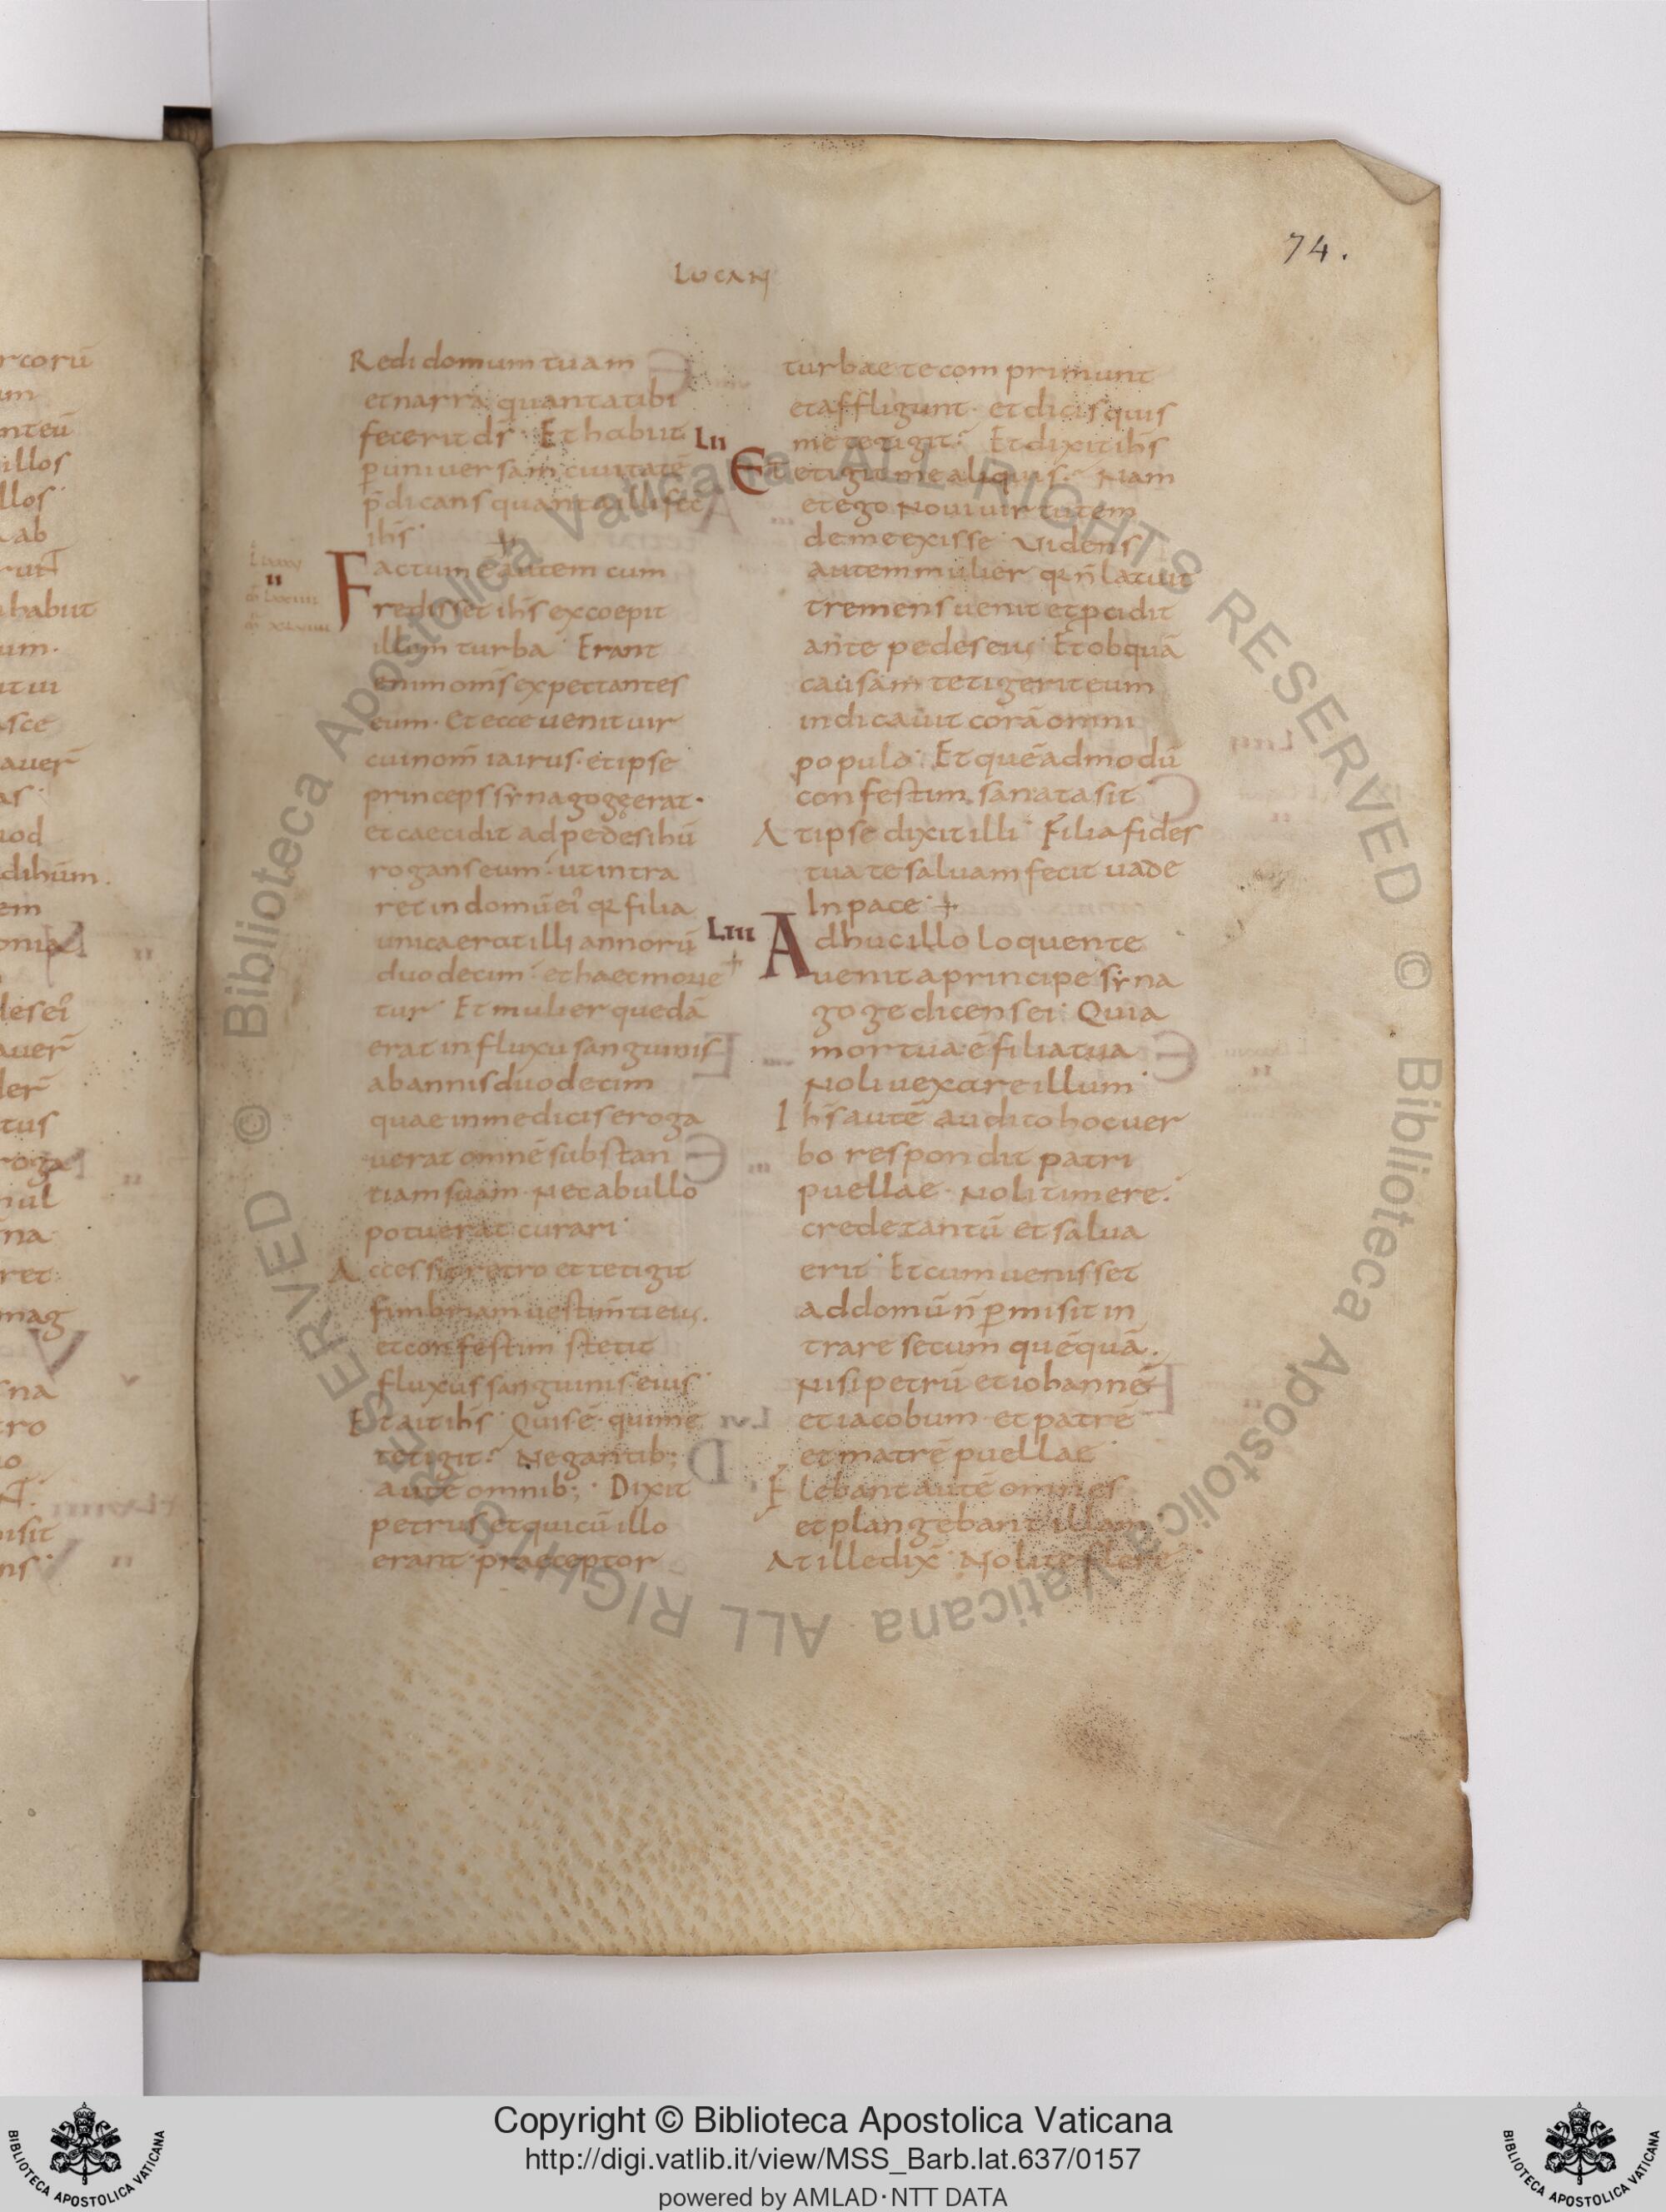 74.
LUCAN
Redi domum tuam
et narra quanta tibi
fecerit dS̄ · Et habiit
p̄ uniuersam ciuitatē
p̄dicans quanta illi fec̄
ihS̄ ·
Factum ē autem cum
redisset ihS̄ excoepit
illum turba · Erant
enim omS̄ expectantes
eum · Et ecce uenit uir
cui nom̄ iairus · et ipse
princeps synagogę erat ·
et caecidit ad pedes ihū
rogans eum ut intra
ret in domū ei' qr filia
unica erat illi annorū
duodecim et haec morie
tur Et mulier quedā
erat in fluxu sanguinis
ab annis duodecim
quae in medicis eroga
uerat omnē substan
tiam suam · Nec ab ullo
potuerat curari ·
Accessit retro et tetigit
fimbriam uestim̄ti eius.
et confestim stetit
fluxus sanguinis eius ·
Et ait ihS̄ · Quis ē qui me
tetigit? Negantib;
autē omnib; · Dixit
petrus et qui cū illo
erant praeceptor
LII
LIII
turbae te com primunt
et affligunt · et dicis quis
me tetigit? Et dixit ihS̄
Etetigit me aliquis · Nam
et ego Noui uirtutem
de me exisse · Uidens
autem mulier qr n̄ latuit
tremens uenit et p̄cidit
ante pedes eius · Et ob quā
causam tetigerit eum
indicauit corā omni
populo · Et quēadmodū
confestim sanata sit ·
At ipse dixit illi · Filia fides
tua te saluam fecit uade
In pace ·
Adhuc illo loquente
uenit a principe syna
goge dicens ei · Quia
mortua ē filia tua
Noli uexare illum ·
IhS̄ autē audito hoc uer
bo respondit patri
puellae · Noli timere.
crede tantū et salua
erit · Et cum uenisset
ad domū n̄ p̄misit in
trare secum quēquā.
Nisi petrū et iohannē
et iacobum et patrē
et matrē puellae ·
Flebant autē omnes
et plangebant illam
At ille dix̄ · Nolite flere
Copyright © Biblioteca Apostolica Vaticana
http://digi.vatlib.it/view/MSS_Barb.lat.637/0157
powered by AMLAD·NTT DATA
BIBLIOTECA APOSTOLICA VATICANA
BIBLIOTECA APOSTOLICA VATICANA